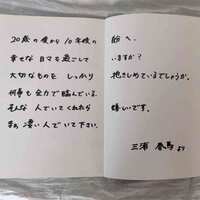 20歳の僕から10年後の 俺へ。
幸せな日々を過ごして いますか?
大切なものを しっかり 抱きしめているでしょうか。
何事も全力で臨んでいる
そんな人でいてくれたら 嬉しいです。
まぁ 凄い人でいて下さい。
三浦 春馬 より